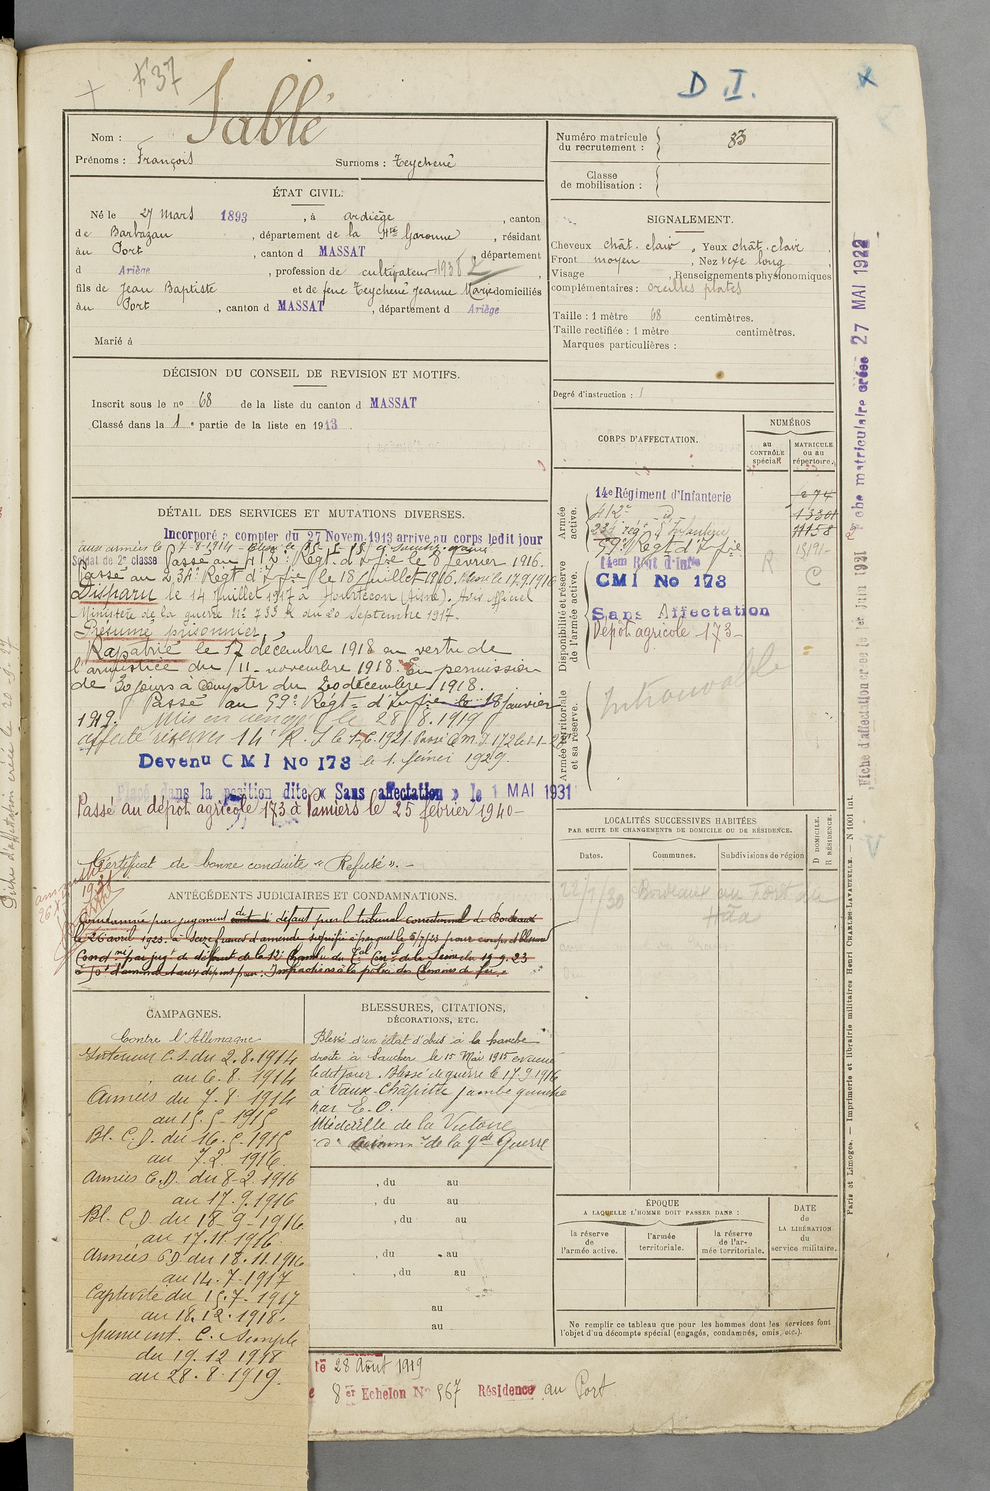 F 37
D I.
x
Nom : Sablé
Prénoms : François Surnoms : Teychené
ÉTAT CIVIL.
Né le 27 mars 1893, à Ardiège, canton
de Barbazan, département de la Hte Garonne, résidant
au Port, canton d MASSAT, département
d Ariège, profession de cultivateur 1938 2
fils de Jean Baptiste et de feue Teychené Jeanne Marie domiciliés
au Port, canton d MASSAT, département d Ariège
Marié à
DÉCISION DU CONSEIL DE REVISION ET MOTIFS.
Inscrit sous le no 68 de la liste du canton d MASSAT
Classé dans la 1e partie de la liste en 1913.
DÉTAIL DES SERVICES ET MUTATIONS DIVERSES.
Incorporé à compter du 27 Novem. 1913 arrivé au corps ledit jour
aux armées le 7-8-1914
Soldat de 2e classe Passé au 412e Régt. d'Inf.ie le 8 février 1916.
Passé au 234e Régt d'Inf.ie le 18 juillet 1916. Blessé le 17.9.1916
Disparu le 14 juillet 1917 à Hurtebise (Aisne). Avis officiel
Ministère de la guerre No 733 K du 20 septembre 1917.
Présumé prisonnier.
Rapatrié le 17 décembre 1918 en vertu de
l'armistice du 11 novembre 1918. En permission
de 30 jours à compter du 20 décembre 1918.
Passé au 59e Régt d'Inf.ie le 18 janvier
1919. Mis en congé le 28/8.1919
affecté réserves 14e R. I. le 1-6.1921. Passé C.M.I. 172 le 1-1-28
Devenu CMI No 173 le 1. février 1929.
Placé dans la position dite « Sans affectation » le 1 MAI 1931
Passé au dépôt agricole 173 à Pamiers le 25 février 1940-
Certificat de bonne conduite « Refusé ».-
ANTÉCÉDENTS JUDICIAIRES ET CONDAMNATIONS.
Condamné par jugement de défaut par le tribunal correctionnel de Bordeaux
le 26 avril 1923. à seize francs d'amende signifié à parquet le 5/7/23 pour coups et blessures
Condné par jugt de défaut de la 12e Chambre du Tal Cnel de la Seine du 19.9.23
à 50f d'amende et aux dépens pour : Infractions à la police des Chemins de fer.
CAMPAGNES.
Contre l'Allemagne
Intérieur C.S. du 2.8.1914
au 6.8.1914
Armées du 7-8-1914
au 15-5-1915
Bl. C.D. du 16-5-1915
au 7.2.1916
Armées C.D. du 8-2.1916
au 17.9.1916
Bl. C.D. du 18-9-1916
au 17.11.1916
Armées CD du 18.11.1916
au 14.7.1917
Captivité du 15.7.1917
au 18.12.1918.
du 19.12 1918
au 28.8.1919.
BLESSURES, CITATIONS,
DÉCORATIONS, ETC.
Blessé d'un éclat d'obus à la hanche
droite à Saucher le 15 Mai 1915 évacué
le dit jour. Blessé de guerre le 17.9.1916
à Vaux-Chapitre jambe gauche
par E.O.
Médaille de la Victoire
de la Gde Guerre
, du au
, du au
, du au
, du au
, du au
au
au
le 28 Août 1919
8er Echelon No 567 Résidence au Port
Numéro matricule
du recrutement : 83
Classe
de mobilisation :
SIGNALEMENT.
Cheveux chât. clair, Yeux chât. clair
Front moyen, Nez vexe long
Visage , Renseignements physionomiques
complémentaires : oreilles plates
Taille : 1 mètre 68 centimètres.
Taille rectifiée : 1 mètre centimètres.
Marques particulières :
Degré d'instruction :
CORPS D'AFFECTATION.
NUMÉROS
au CONTRÔLE spécial
MATRICULE ou au répertoire.
Armée active.
14e Régiment d'Infanterie
412e d°
234 rég. d'Infanterie
59e Régt d'Inf.ie
Disponibilité et réserve de l'armée active.
14em Régt d'Infie
CMI No 173
Sans Affectation
Dépôt agricole 173-
R
C
Armée territoriale et sa réserve.
Introuvable
LOCALITÉS SUCCESSIVES HABITÉES
PAR SUITE DE CHANGEMENTS DE DOMICILE OU DE RÉSIDENCE.
Dates.
Communes.
Subdivisions de région
D DOMICILE.
R RÉSIDENCE.
Bordeaux au Fort du
Hâa
ÉPOQUE
A LAQUELLE L'HOMME DOIT PASSER DANS :
la réserve de l'armée active.
l'armée territoriale.
la réserve de l'armée territoriale.
DATE de LA LIBÉRATION du service militaire.
Ne remplir ce tableau que pour les hommes dont les services font
l'objet d'un décompte spécial (engagés, condamnés, omis, etc.).
Fiche matriculaire créée 27 MAI 1922
Fiche d'affectation créée le 1er Juin 1931
Paris et Limoges. — Imprimerie et librairie militaires Henri CHARLES-LAVAUZELLE. — N 1001 int.